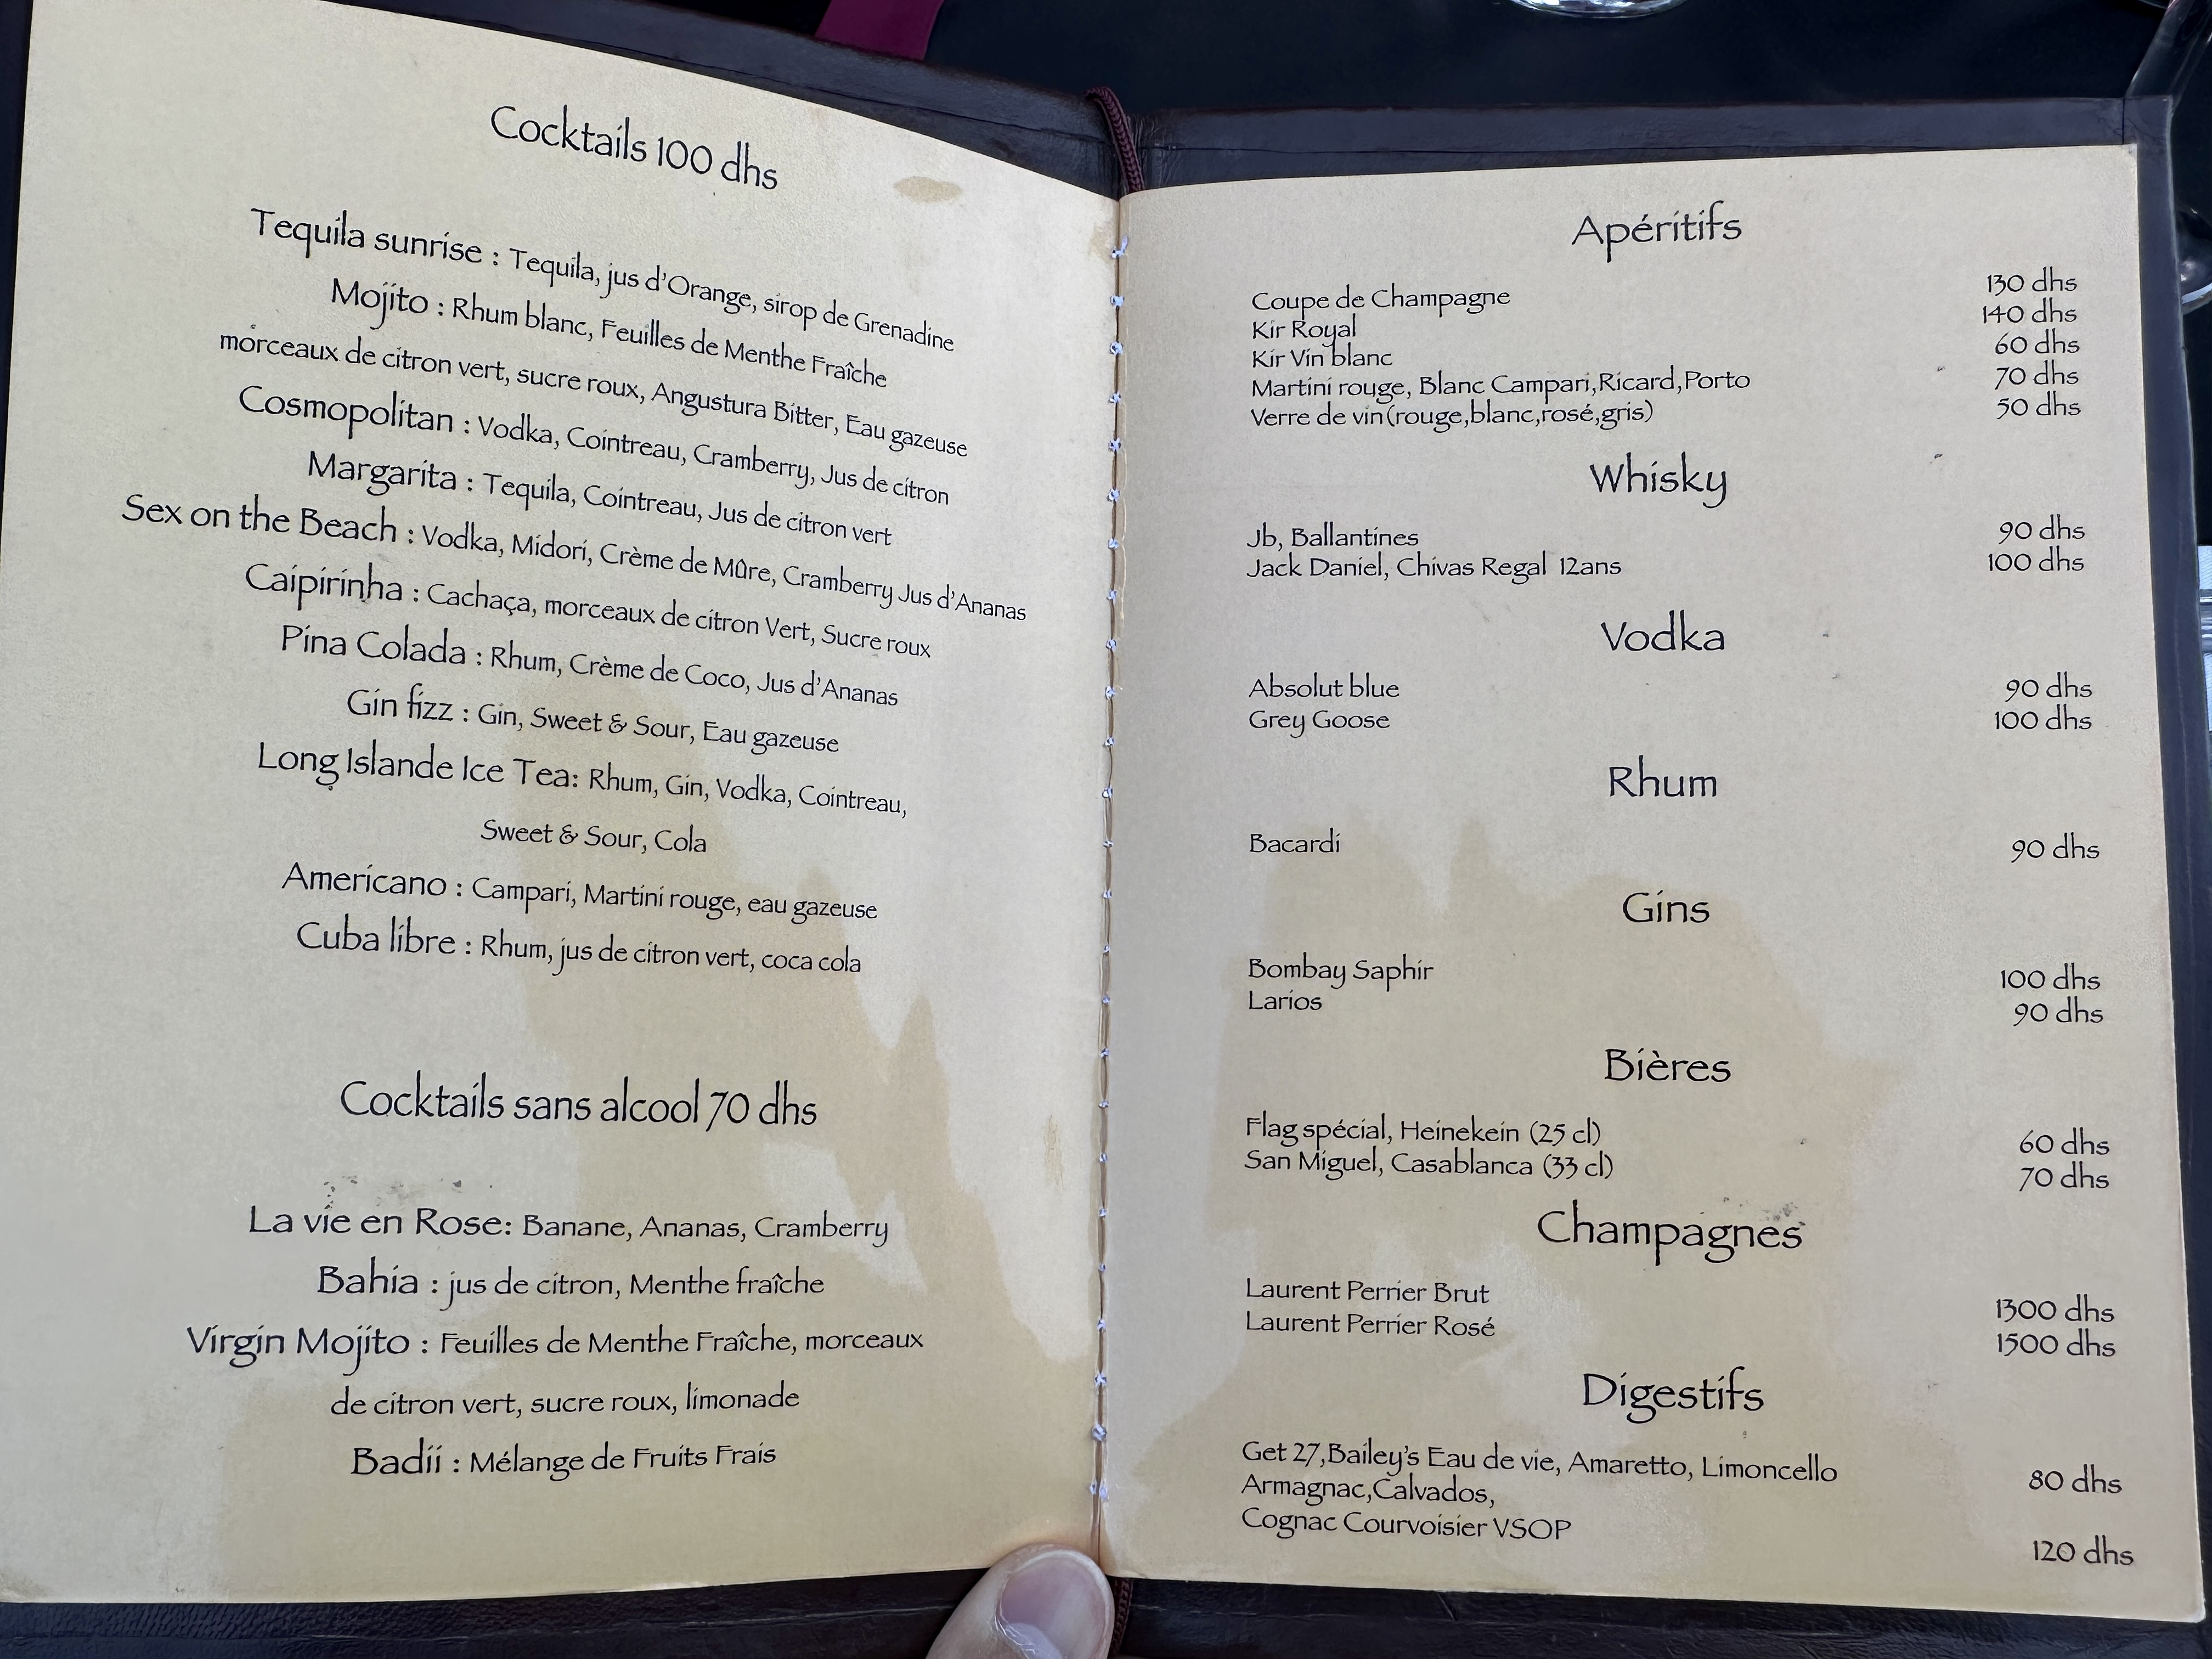 Cocktails 100 dhs
Tequila sunrise : Tequila, jus d'Orange, sirop de Grenadine
Mojito : Rhum blanc, Feuilles de Menthe Fraîche
morceaux de citron vert, sucre roux, Angustura Bitter, Eau gazeuse
Cosmopolitan : Vodka, Cointreau, Cramberry, Jus de citron
Margarita : Tequila, Cointreau, Jus de citron vert
Sex on the Beach : Vodka, Midori, Crème de Mûre, Cramberry Jus d'Ananas
Caipirinha : Cachaça, morceaux de citron Vert, Sucre roux
Pina Colada : Rhum, Crème de Coco, Jus d'Ananas
Gin fizz : Gin, Sweet & Sour, Eau gazeuse
Long Islande Ice Tea: Rhum, Gin, Vodka, Cointreau,
Sweet & Sour, Cola
Americano : Campari, Martini rouge, eau gazeuse
Cuba libre : Rhum, jus de citron vert, coca cola
Cocktails sans alcool 70 dhs
La vie en Rose: Banane, Ananas, Cramberry
Bahia : jus de citron, Menthe fraîche
Virgin Mojito : Feuilles de Menthe Fraîche, morceaux
de citron vert, sucre roux, limonade
Badii : Mélange de Fruits Frais
Apéritifs
Coupe de Champagne 130 dhs
Kir Royal 140 dhs
Kir Vin blanc 60 dhs
Martini rouge, Blanc Campari,Ricard,Porto 70 dhs
Verre de vin(rouge,blanc,rosé,gris) 50 dhs
Whisky
Jb, Ballantines 90 dhs
Jack Daniel, Chivas Regal 12ans 100 dhs
Vodka
Absolut blue 90 dhs
Grey Goose 100 dhs
Rhum
Bacardi 90 dhs
Gins
Bombay Saphir 100 dhs
Larios 90 dhs
Bières
Flag spécial, Heinekein (25 cl) 60 dhs
San Miguel, Casablanca (33 cl) 70 dhs
Champagnes
Laurent Perrier Brut 1300 dhs
Laurent Perrier Rosé 1500 dhs
Digestifs
Get 27,Bailey's Eau de vie, Amaretto, Limoncello 80 dhs
Armagnac,Calvados,
Cognac Courvoisier VSOP 120 dhs